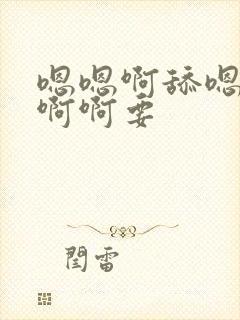 嗯嗯啊舔嗯
啊啊要
閏雷